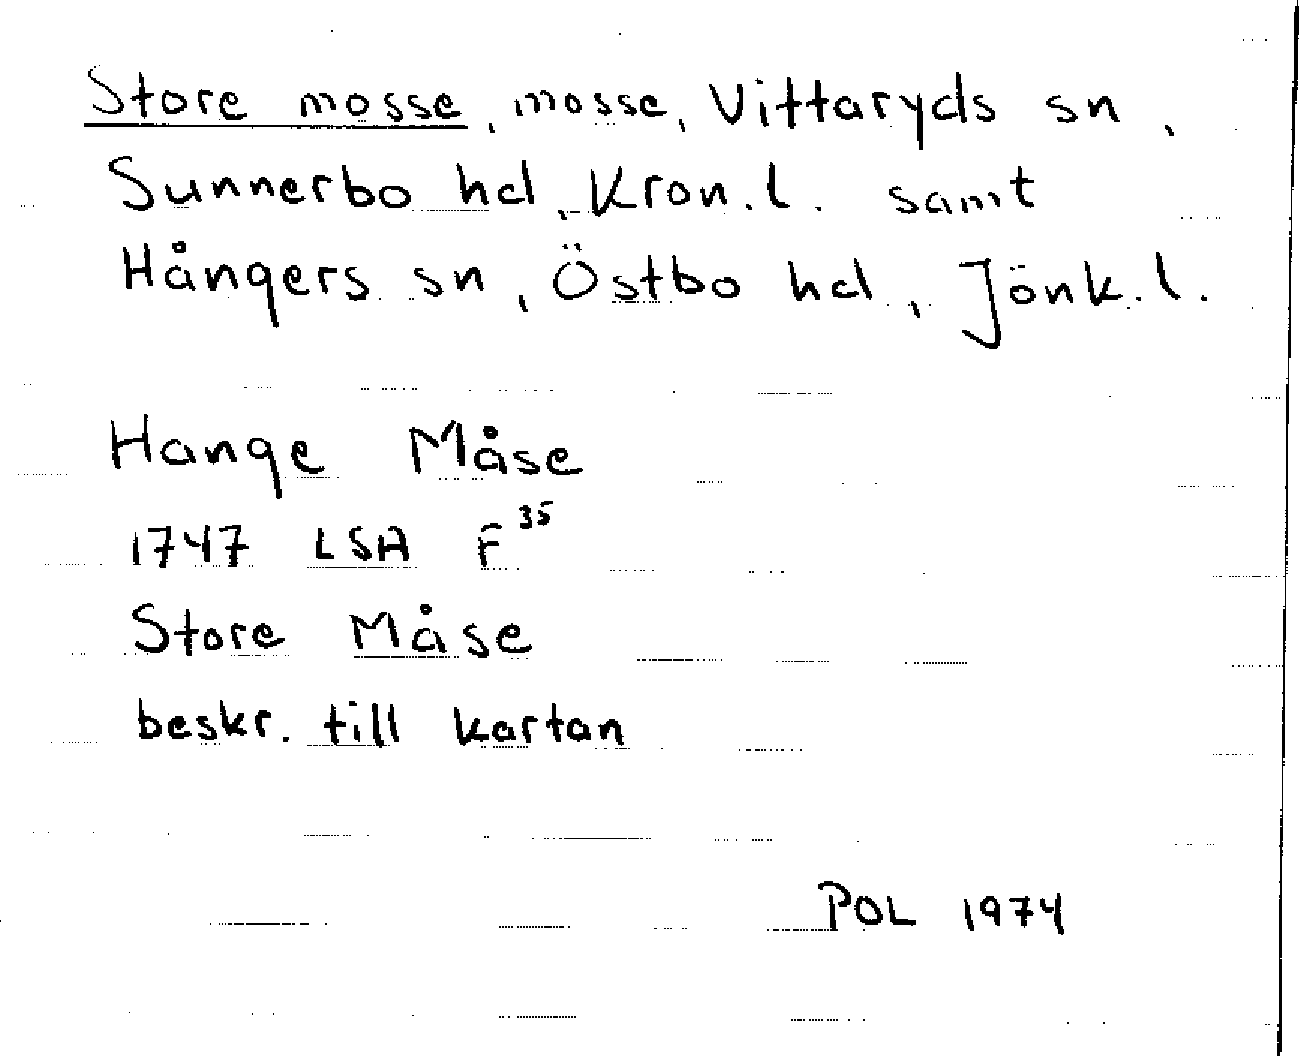 Store mosse, mosse, Vittaryds sn,
Sunnerbo hd, Kron.l. samt
Hångers sn, Östbo hd, Jönk.l.
Hange Måse
1747 LSA F³⁵
Store Måse
beskr. till kartan
POL 1974